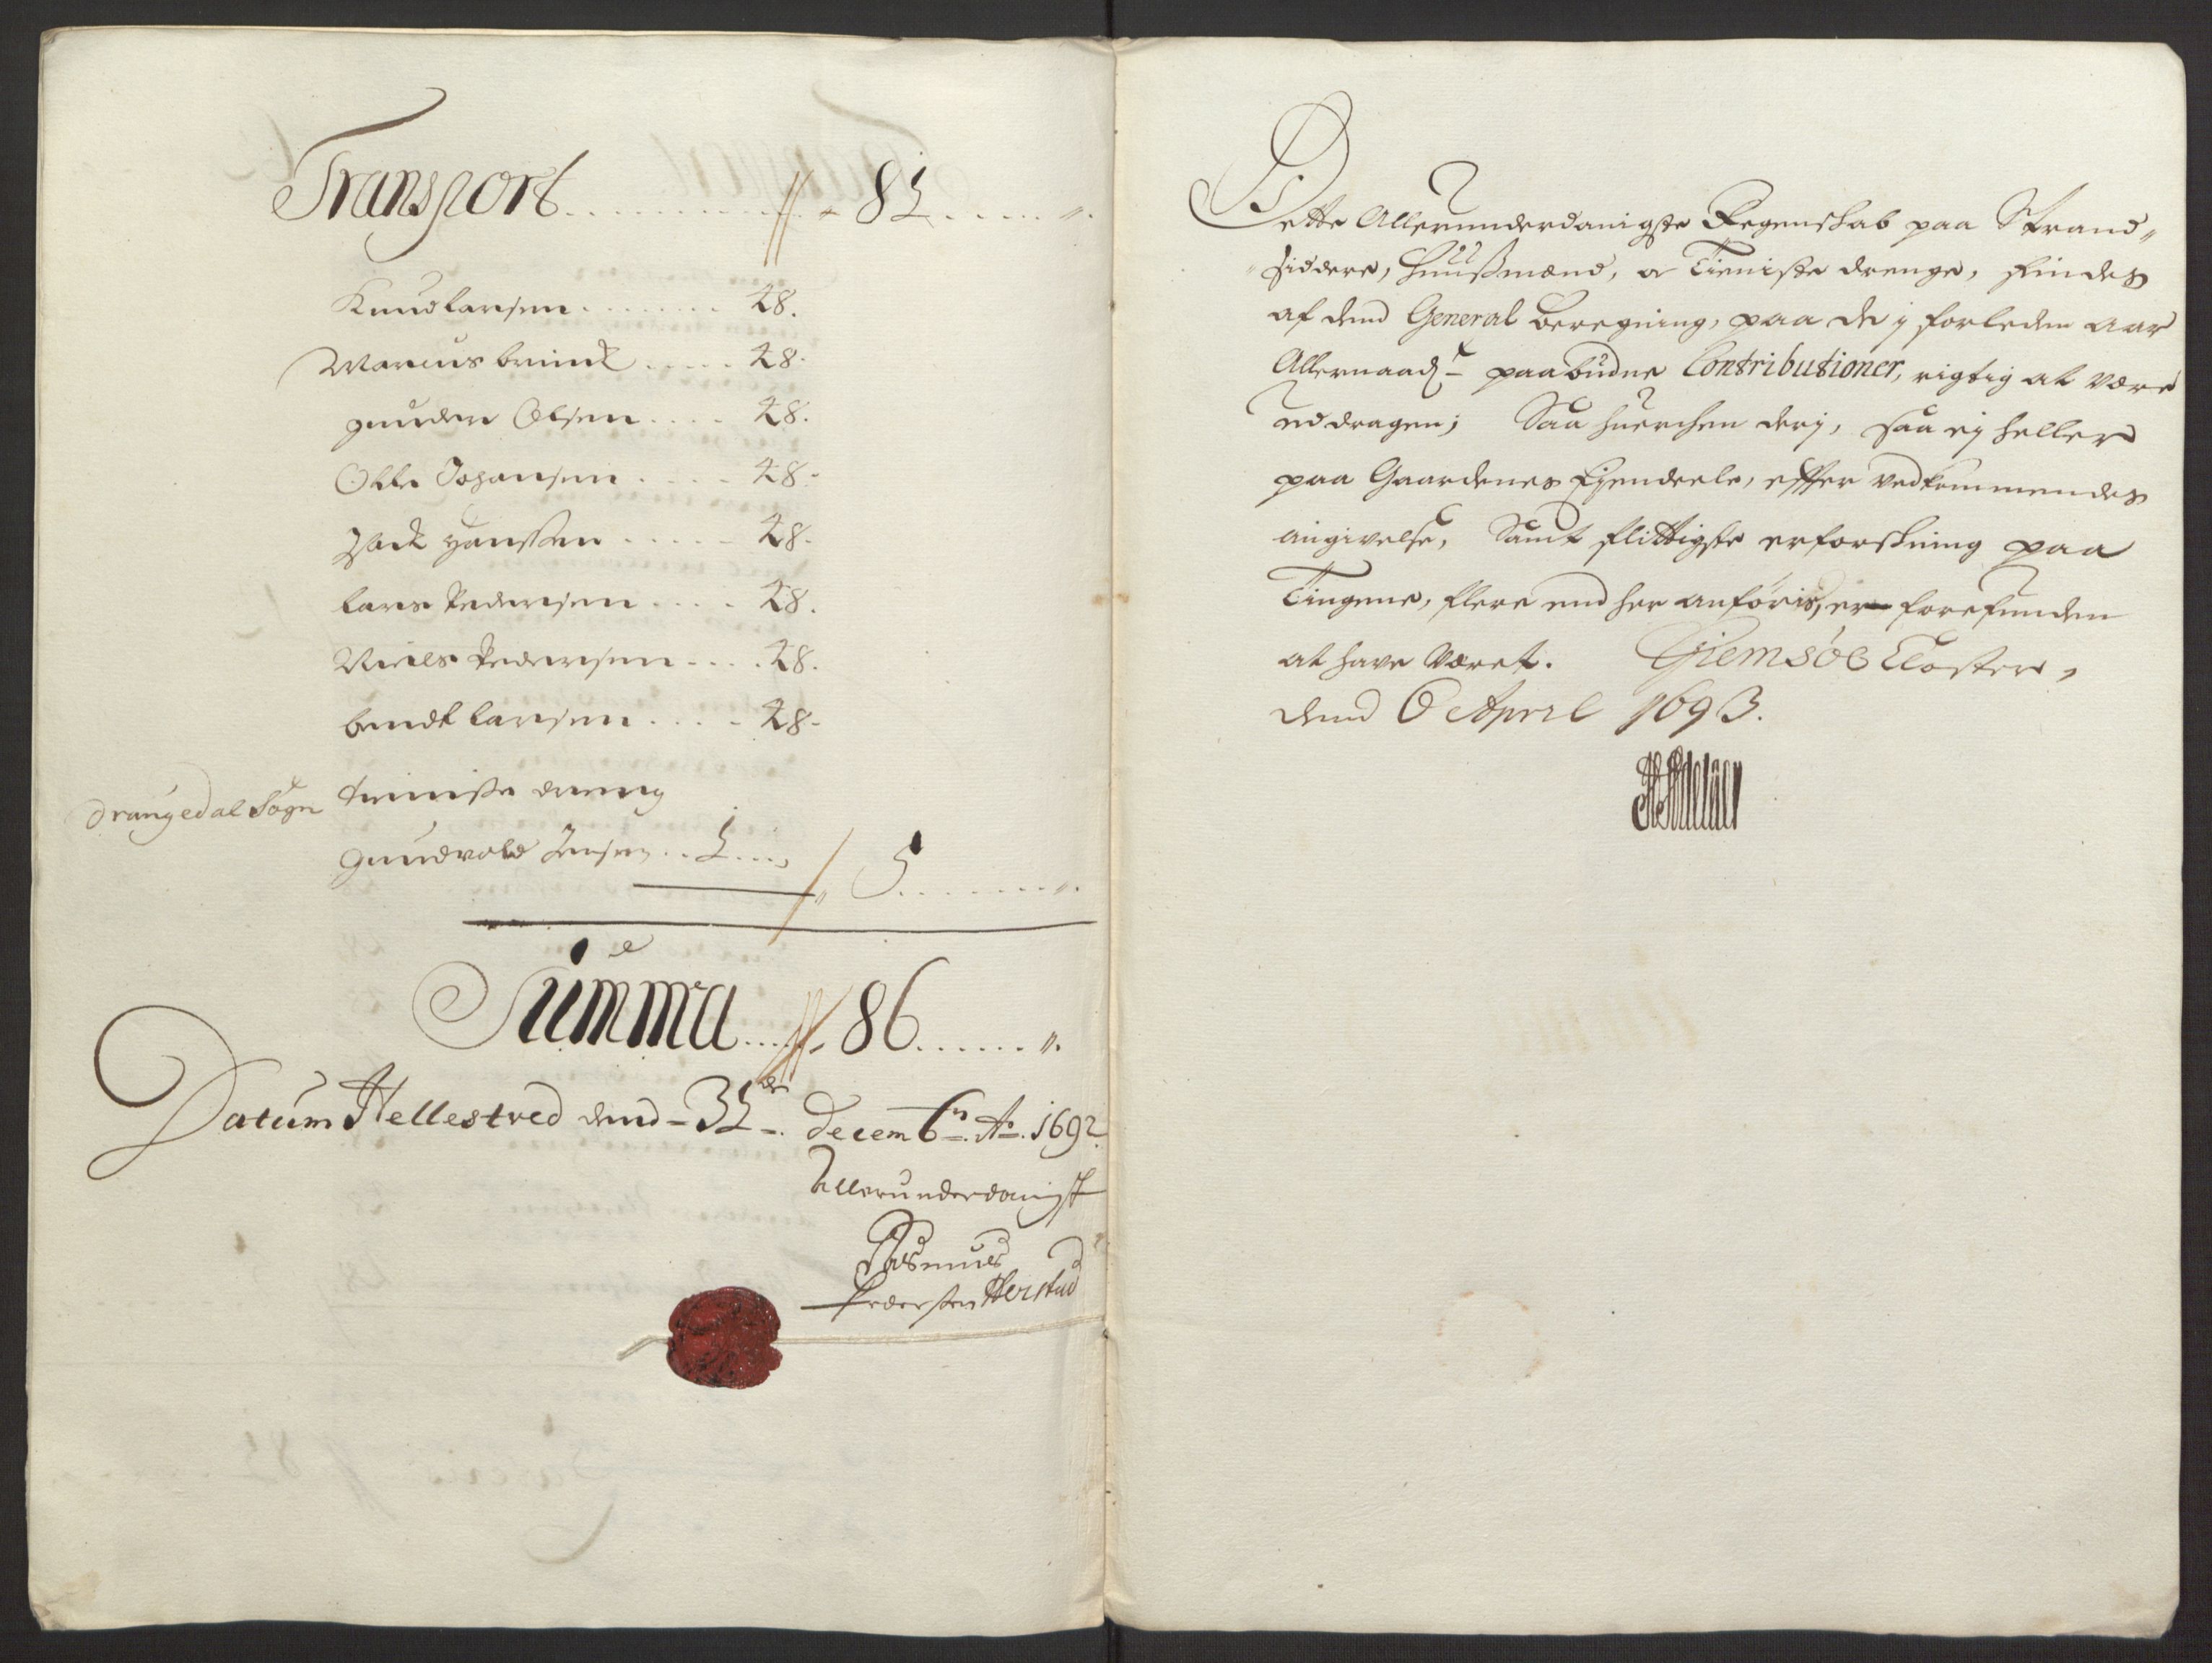 Transport . . . . . . . . . . 81 . . . . . "
Knud Larsen . . . . . . . 48.
Marcus brinck . . . . . 48.
gunder Olsen . . . . 48.
Olle Johansen . . . . 48.
Jack Hanssen . . . . . 48.
Lars Pedersen . . . . 48.
Niels Pedersen . . . . 48.
bendt Larsen . . . . 48.
drangedal Sogn tienniste dreng
gundvold Jensen . . 1 . . . " 5 . . . . . . . ".
Summa . . . . 86 . . . . . . ".
Datum Hellestved dend 31 de Decemb. Ao. 1692.
Allerunderdanigst
Rasmus
Pedersen Herstad
Dette Allerunderdanigste Regenskab paa Strand"
"siddere, Huusmænd, oc Tieniste drenge, findes
af dend General beregning, paa de y forleden aar
Allernaadt paabudne Contributioner, rigtig at være
uddragen; Saa huerchen derj, saa ej heller
paa Gaardenes Ejendeele, efter vedkommendes
angivelse, samt flittigste erforskning paa
Tingene, flere end her anføris, er forefunden
at have været. Giemsøe Closter,
dend 6 April 1693.